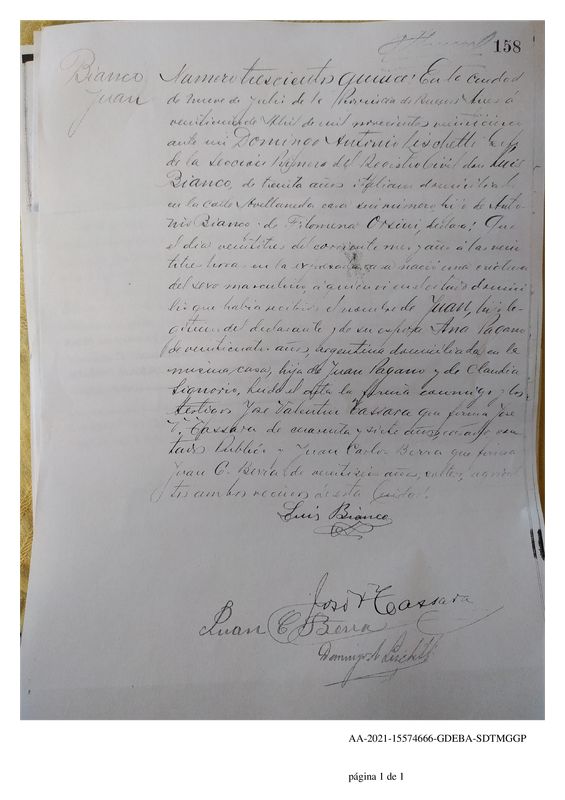 158
Bianco
Juan
Numero trescientos quince: En la ciudad
de nueve de Julio de la Provincia de Buenos Aires á
veintinueve de Abril de mil novecientos veinticinco
ante mi Domingo Antonio Lischetti Jefe
de la Seccion Primera del Registro Civil don Luis
Bianco, de treinta años italiano domiciliado
en la calle Avellaneda casa sin número, hijo de Anto-
nio Bianco y de Filomena Orsini, declaró: Que
el dia veintitres del corriente mes y año á las vein
titres horas en la expresada casa nació una criatura
del sexo masculino, á quien vi en el citado domici
lio que había recibido el nombre de Juan, hijo le-
gitimo del declarante y de su esposa Ana Pagano
de veinticuatro años, argentina domiciliada en la
misma casa, hija de Juan Pagano y de Claudia
Signorio, leida el acta la firmó conmigo y los
testigos José Valentin Cassara que firma José
V. Cassara de cuarenta y siete años, casado con
tador Público y Juan Carlos Berra que firma
Juan C. Berra de veintiseis años, soltero, agricul
tor ambos vecinos de esta Ciudad.
Luis Bianco
José V Cassara
Juan C Berra
Domingo A Lischetti
AA-2021-15574666-GDEBA-SDTMGGP
página 1 de 1